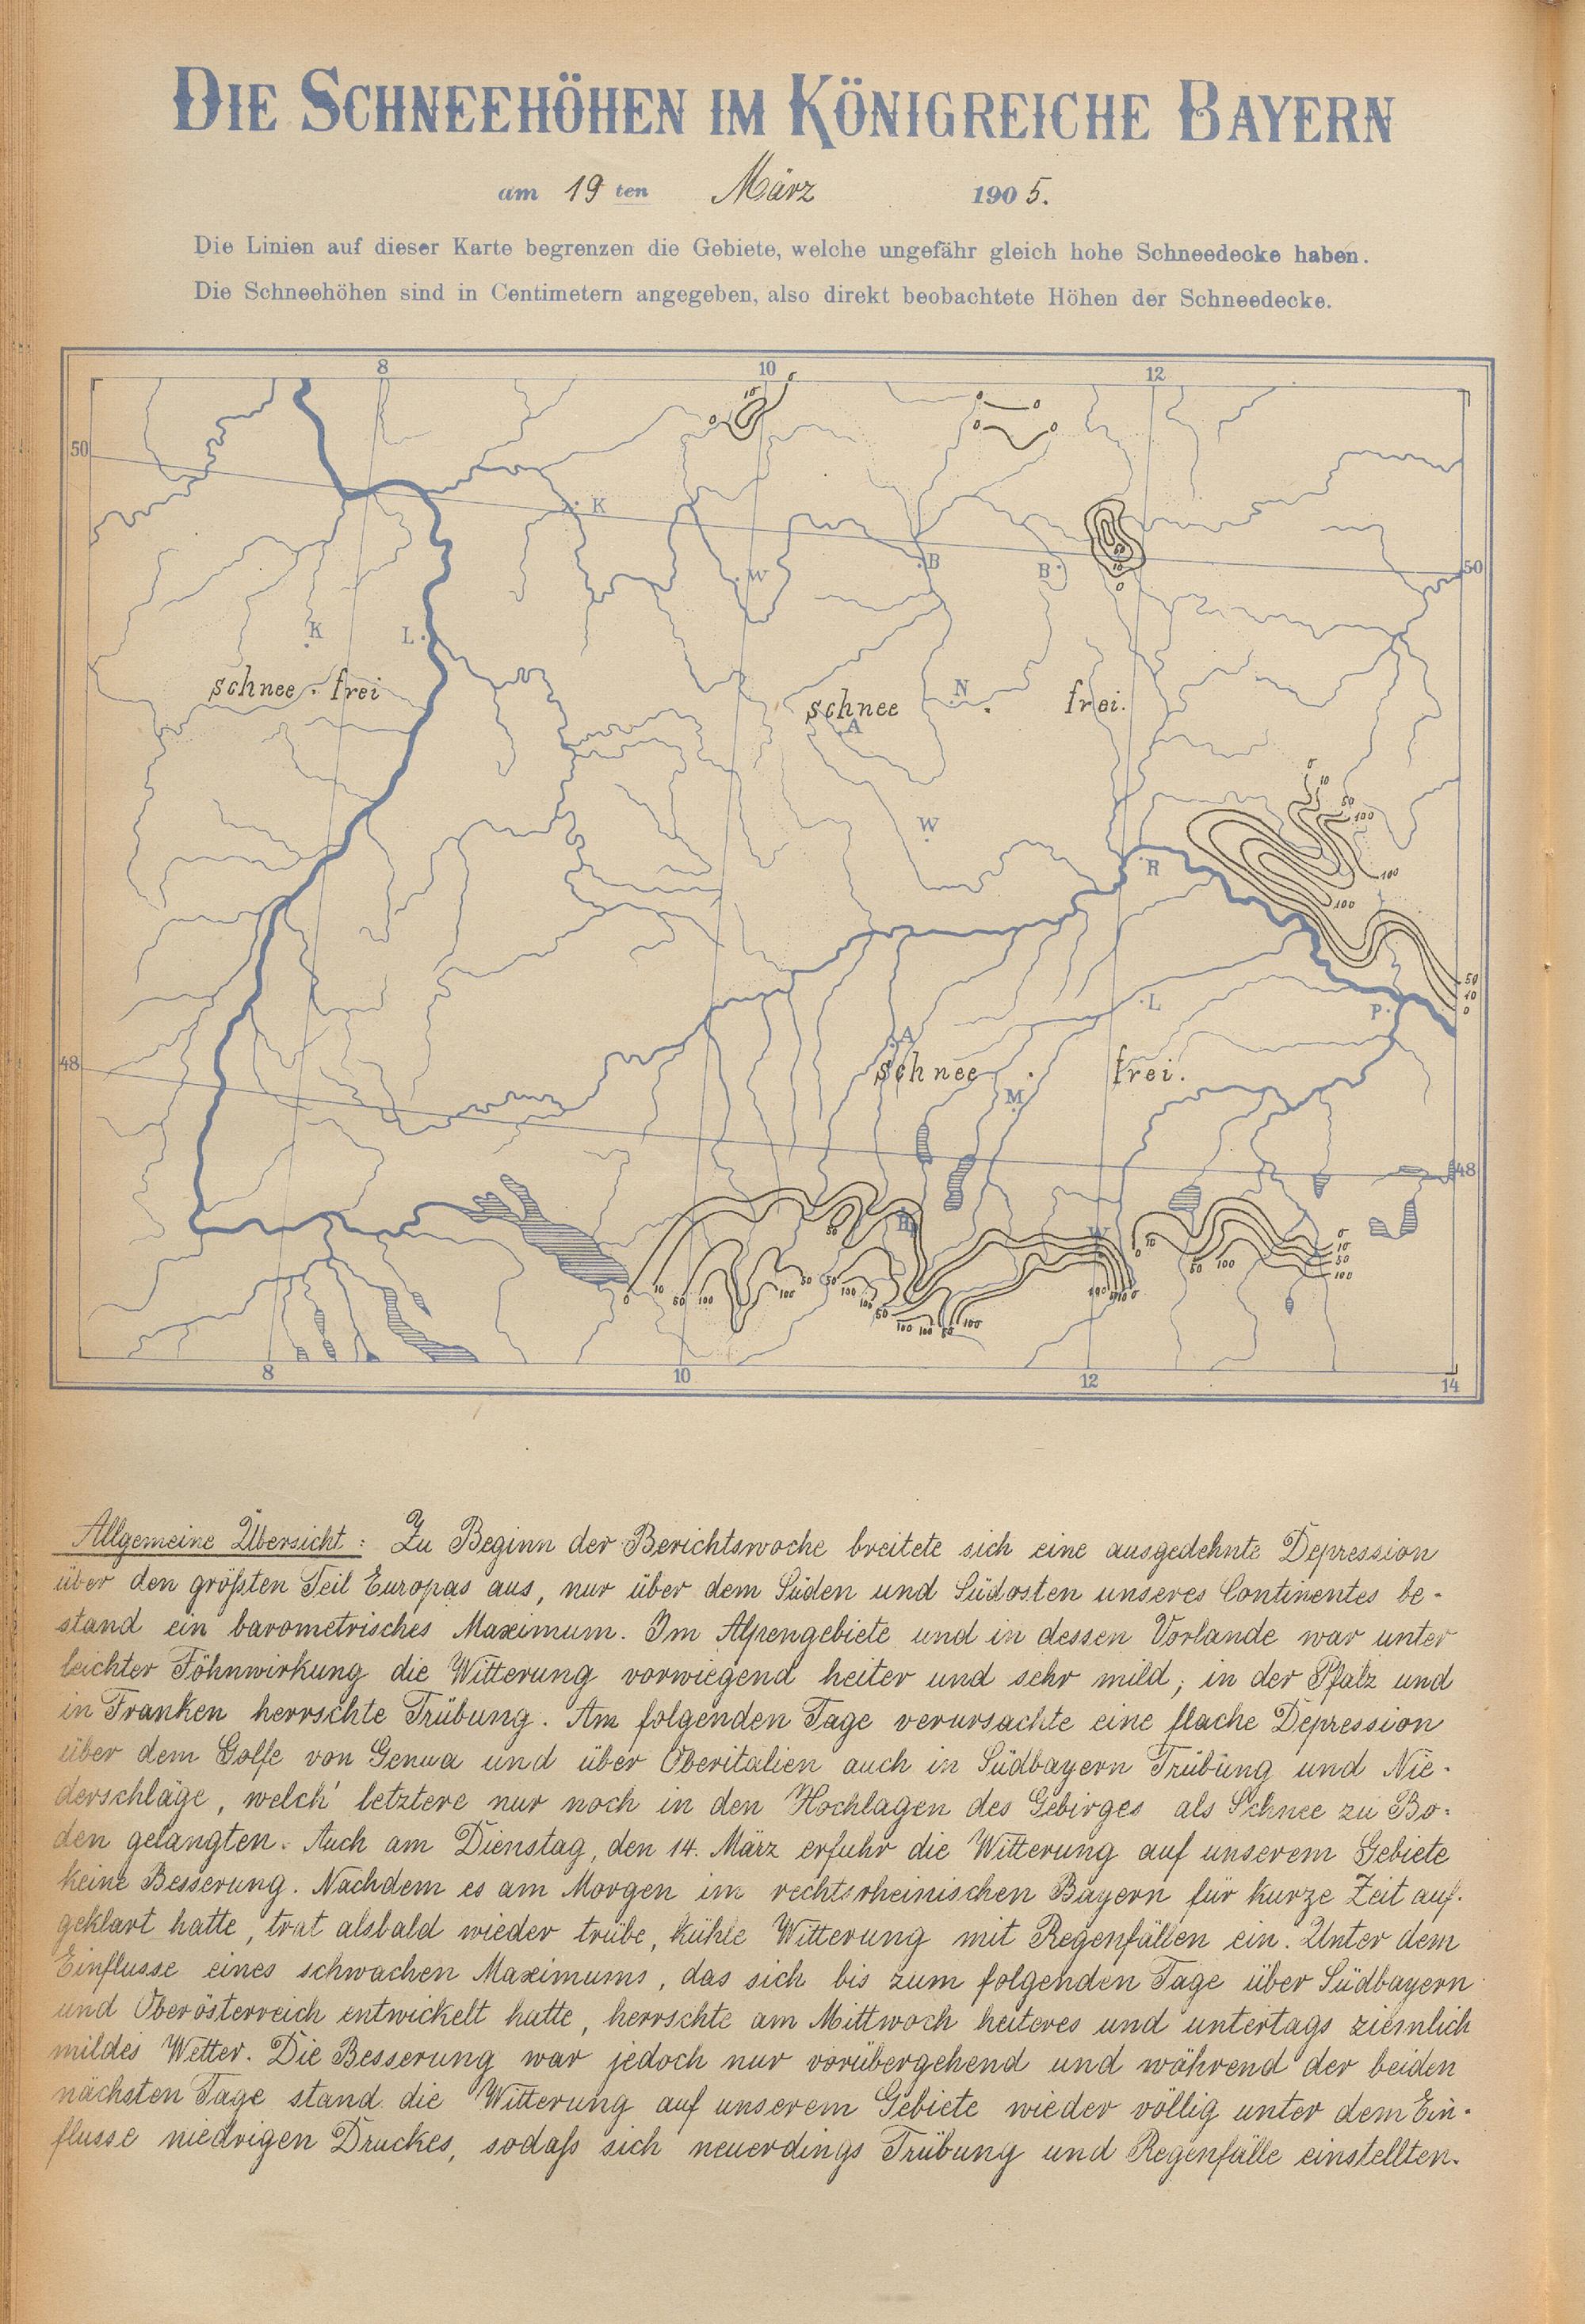 DIE SCHNEEHÖHEN IM KÖNIGREICHE BAYERN
am 19 ten März 1905.
Die Linien auf dieser Karte begrenzen die Gebiete, welche ungefähr gleich hohe Schneedecke haben.
Die Schneehöhen sind in Centimetern angegeben, also direkt beobachtete Höhen der Schneedecke.
8 10 12
50
K
W B B
50
K L
schnee frei
schnee frei.
N
A
W
R
L
P
48
A
schnee frei.
M
48
8 10 12 14
Allgemeine Übersicht: Zu Beginn der Berichtswoche breitete sich eine ausgedehnte Depression
über den größten Teil Europas aus, nur über dem Süden und Südosten unseres Continentes be-
stand ein barometrisches Maximum. Im Alpengebiete und in dessen Vorlande war unter
leichter Föhnwirkung die Witterung vorwiegend heiter und sehr mild; in der Pfalz und
in Franken herrschte Trübung. Am folgenden Tage verursachte eine flache Depression
über dem Golfe von Genua und über Oberitalien auch in Südbayern Trübung und Nie-
derschläge, welch' letztere nur noch in den Hochlagen des Gebirges als Schnee zu Bo-
den gelangten. Auch am Dienstag, den 14. März erfuhr die Witterung auf unserem Gebiete
keine Besserung. Nachdem es am Morgen im rechtsrheinischen Bayern für kurze Zeit auf-
geklart hatte, trat alsbald wieder trübe, kühle Witterung mit Regenfällen ein. Unter dem
Einflusse eines schwachen Maximums, das sich bis zum folgenden Tage über Südbayern
und Oberösterreich entwickelt hatte, herrschte am Mittwoch heiteres und untertags ziemlich
mildes Wetter. Die Besserung war jedoch nur vorübergehend und während der beiden
nächsten Tage stand die Witterung auf unserem Gebiete wieder völlig unter dem Ein-
flusse niedrigen Druckes, sodaß sich neuerdings Trübung und Regenfälle einstellten.